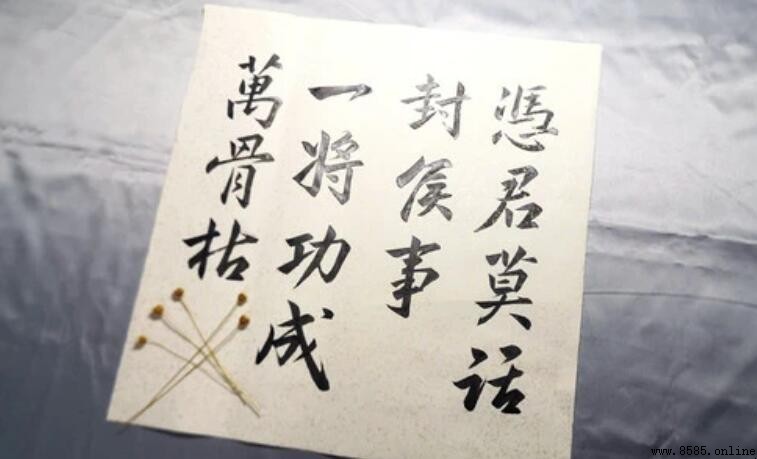 憑君莫话
封侯事
一将功成
萬骨枯
www.8585.online